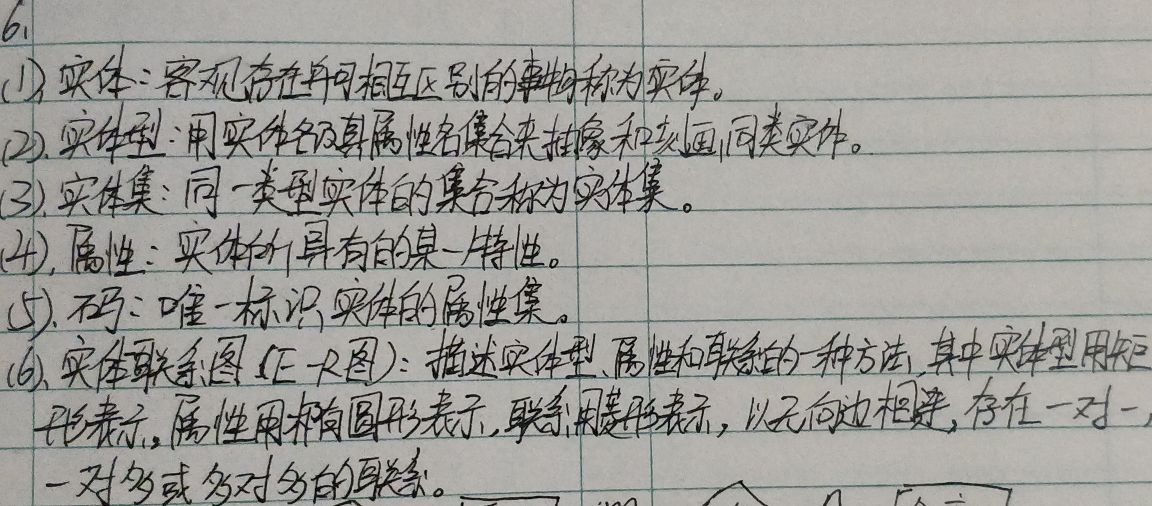 6.
(1). 实体：客观存在并可相互区别的事物称为实体。
(2). 实体型：用实体名及其属性名集合来抽象和刻画同类实体。
(3). 实体集：同一类型实体的集合称为实体集。
(4). 属性：实体所具有的某一特性。
(5). 码：唯一标识实体的属性集。
(6). 实体联系图（E-R图）：描述实体型、属性和联系的一种方法，其中实体型用矩
形表示，属性用椭圆形表示，联系用菱形表示，以无向边相连，存在一对一，
一对多或多对多的联系。